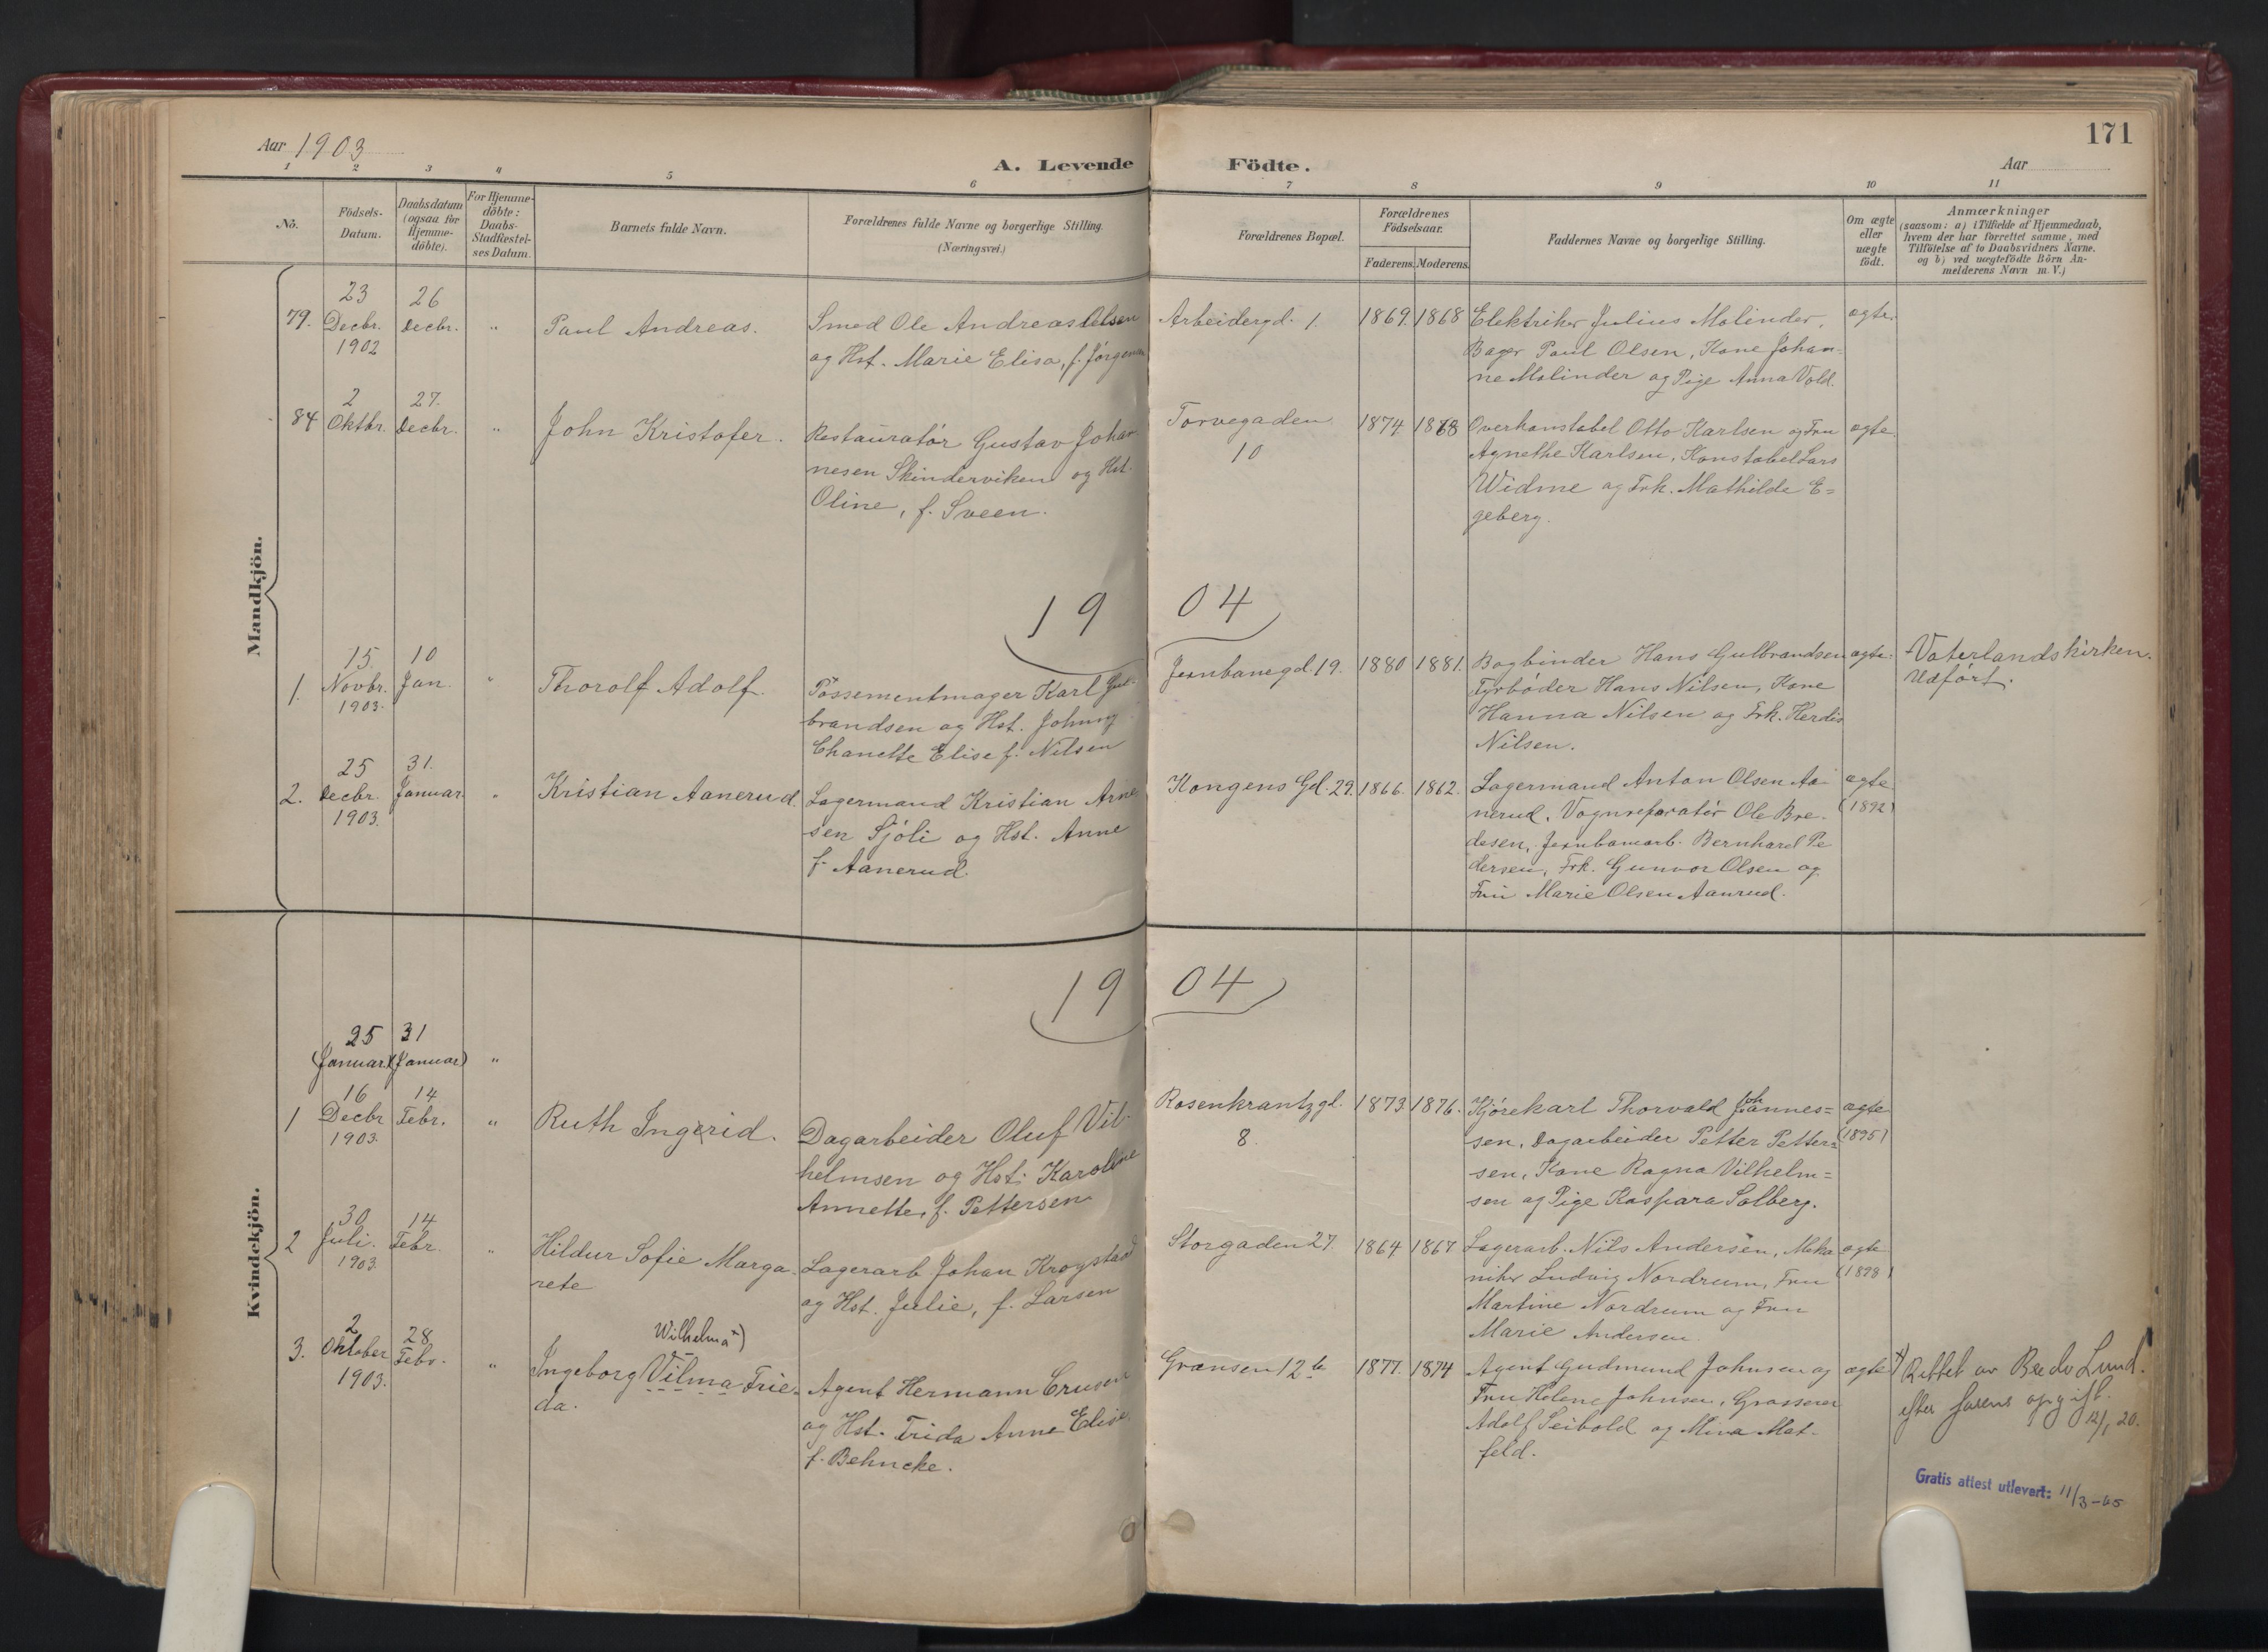 Aar 1903
A. Levende Födte.
Aar
171
1 2 3 4 5 6 7 8 9 10 11
No.
Födsels-
Datum.
Daabsdatum
(ogsaa for
Hjemme-
döbte).
For Hjemme-
döbte:
Daabs-
Stadfestel-
ses Datum.
Barnets fulde Navn.
Forældrenes fulde Navne og borgerlige Stilling.
(Næringsvei.)
Forældrenes Bopæl.
Forældrenes
Födselsaar.
Faderens. Moderens.
Faddernes Navne og borgerlige Stilling.
Om ægte
eller
uægte
födt.
Anmærkninger
(saasom: a) i Tilfælde af Hjemmedaab,
hvem der har forrettet samme, med
Tilföielse af to Daabsvidners Navne.
og b) ved uægtefödte Börn An-
melderens Navn m. V.)
Mandkjön.
79.
23
Decbr.
1902
26
Decbr.
"
Paul Andreas.
Smed Ole Andreas Olsen
og Hst. Marie Elisa, f. Jörgensen
Arbeidergd. 1.
1869. 1868
Elektriker Julius Molinder,
Bager Paul Olsen, Kone Johan-
ne Molinder og Pige Anna Vold.
ægte.
84
2
Oktbr.
27.
Decbr.
"
John Kristofer.
Restauratör Gustav Johan
nesen Skinderviken og Hst.
Oline, f. Sveen.
Torvegaden
10
1874 1868
Overkonstabel Otto Karlsen og Fru
Agnethe Karlsen, Konstabel Lars
Widme og Frk. Mathilde E=
geberg.
ægte.
19 04
1.
15.
Novbr.
1903.
10
Jan.
"
Thorolf Adolf.
Possementmager Karl Gul-
brandsen og Hst. Johnny
Chanette Elise f. Nilsen
Jernbanegd. 19.
1880 1881.
Bogbinder Hans Gulbrandsen
Fyrböder Hans Nilsen, Kone
Hanna Nilsen og Frk. Herdis
Nilsen.
ægte.
Vaterlands kirken.
Udfört.
2.
25
Decbr.
1903.
31.
Januar.
"
Kristian Aanerud.
Lagermand Kristian Arne
sen Sjöli og Hst. Anne
f. Aanerud.
Kongens Gd. 29.
1866. 1862.
Lagermand Anton Olsen Aa-
nerud, Vognreparatör Ole Bre-
desen, Jernbanearb. Bernhard Pe
dersen, Frk. Gunvor Olsen og
Fru Marie Olsen Aanrud.
ægte
(1892)
19 04
Kvindekjön.
25
(Januar)
31
(Januar)
"
1
16
Decbr
1903.
14
Febr.
"
Ruth Ingerid.
Dagarbeider Oluf Vil-
helmsen og Hst. Karoline
Annette, f. Pettersen
Rosenkrantzgd.
8.
1873. 1876.
Kjörekarl Thorvald Johannes=
sen, Dagarbeider Petter Petter=
sen, Kone Ragna Vilhelm=
sen og Pige Kaspara Solberg.
ægte
(1895)
2
30
Juli.
1903.
14
Febr.
"
Hildur Sofie Marga-
rete
Lagerarb. Johan Krogstad
og Hst. Julie, f. Larsen
Storgaden 27.
1864 1867
Lagerarb. Nils Andersen, Meka
niker Ludvig Nordrum, Fru
Martine Nordrum og Fru
Marie Andersen
ægte
(1898)
3.
2
Oktober
1903.
28
Febr.
"
Wilhelma x)
Ingeborg Vilma Frie-
da.
Agent Hermann Crusen
og Hst. Frida Anne Elise
f. Behncke.
Grænsen 12 b
1877. 1874
Agent Gudmund Johnsen og
Fru Helene Johnsen, Grosserer
Adolf Seibold og Mina Mat-
feld.
ægte
x) Rettet av Lund.
efter farens opgift.
12/1 20.
Gratis attest utlevert: 11/3-65